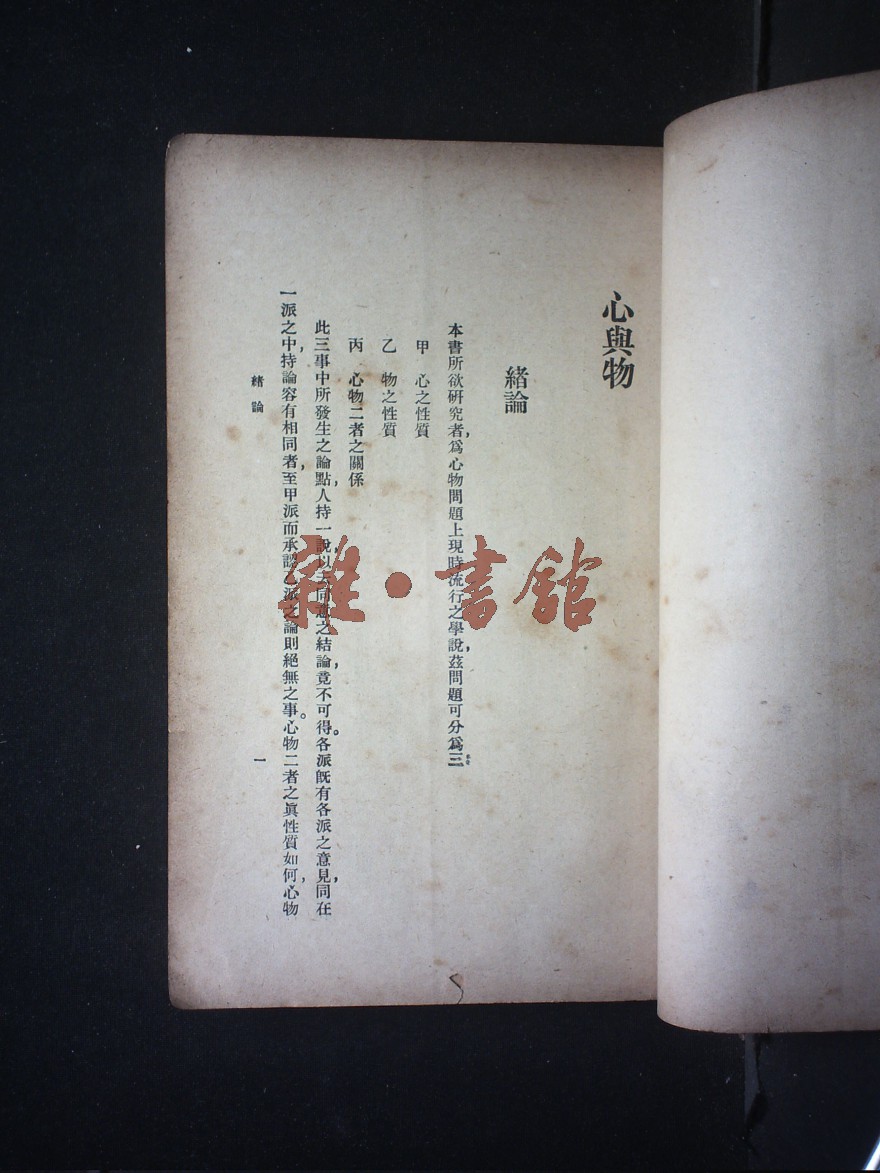 心與物
緒論
本書所欲研究者，爲心物問題上現時流行之學說，茲問題可分爲三
甲　心之性質
乙　物之性質
丙　心物二者之關係
此三事中所發生之論點，人持一說，以求同意之結論，竟不可得。各派旣有各派之意見，同在
一派之中，持論容有相同者，至甲派而承認乙派之論，則絕無之事。心物二者之眞性質如何，心物
緒論
一
雜·書館